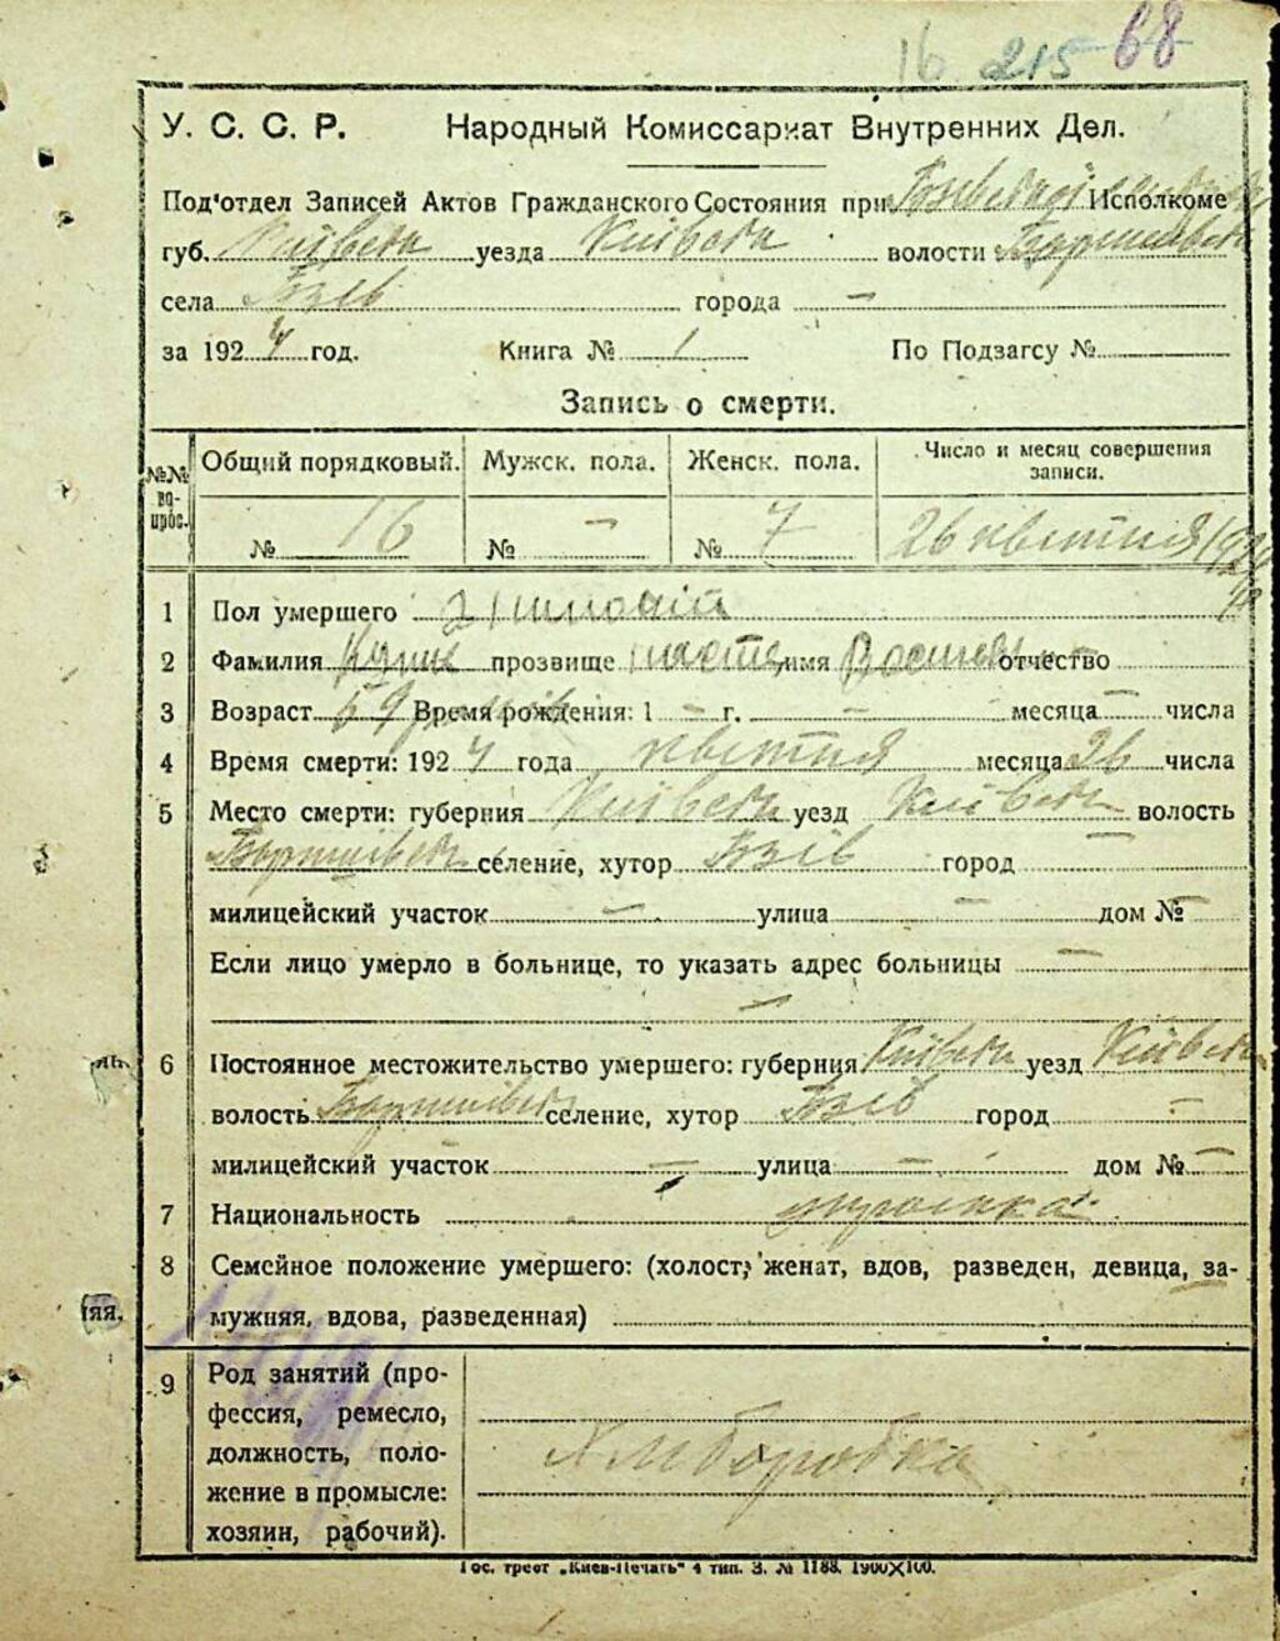 16 215 68
У. С. С. Р. Народный Комиссариат Внутренних Дел.
Под'отдел Записей Актов Гражданского Состояния при Исполкоме
губ. Київськ уезда Київськ волости
села Бзів города —
за 1924 год. Книга № 1 По Подзагсу №
Запись о смерти.
№№ во- прос. Общий порядковый. Мужск. пола. Женск. пола. Число и месяц совершения записи.
№ 16 № — № 7 26 квітня 192
1 Пол умершего жіночій
2 Фамилия прозвище имя отчество
3 Возраст 59 Время рождения: 1 — г. — месяца — числа
4 Время смерти: 1924 года квітня месяца 26 числа
5 Место смерти: губерния Київськ уезд Київськ волость
селение, хутор Бзів город —
милицейский участок — улица — дом № —
Если лицо умерло в больнице, то указать адрес больницы —
—
6 Постоянное местожительство умершего: губерния Київськ уезд Київськ
волость селение, хутор Бзів город —
милицейский участок — улица — дом № —
7 Национальность
8 Семейное положение умершего: (холост, женат, вдов, разведен, девица, за-
мужняя, вдова, разведенная)
9 Род занятий (про-
фессия, ремесло,
должность, поло- Хліборобка
жение в промысле:
хозяин, рабочий).
Гос. трест „Киев-Печать" 4 тип. З. № 1188. 1900×100.